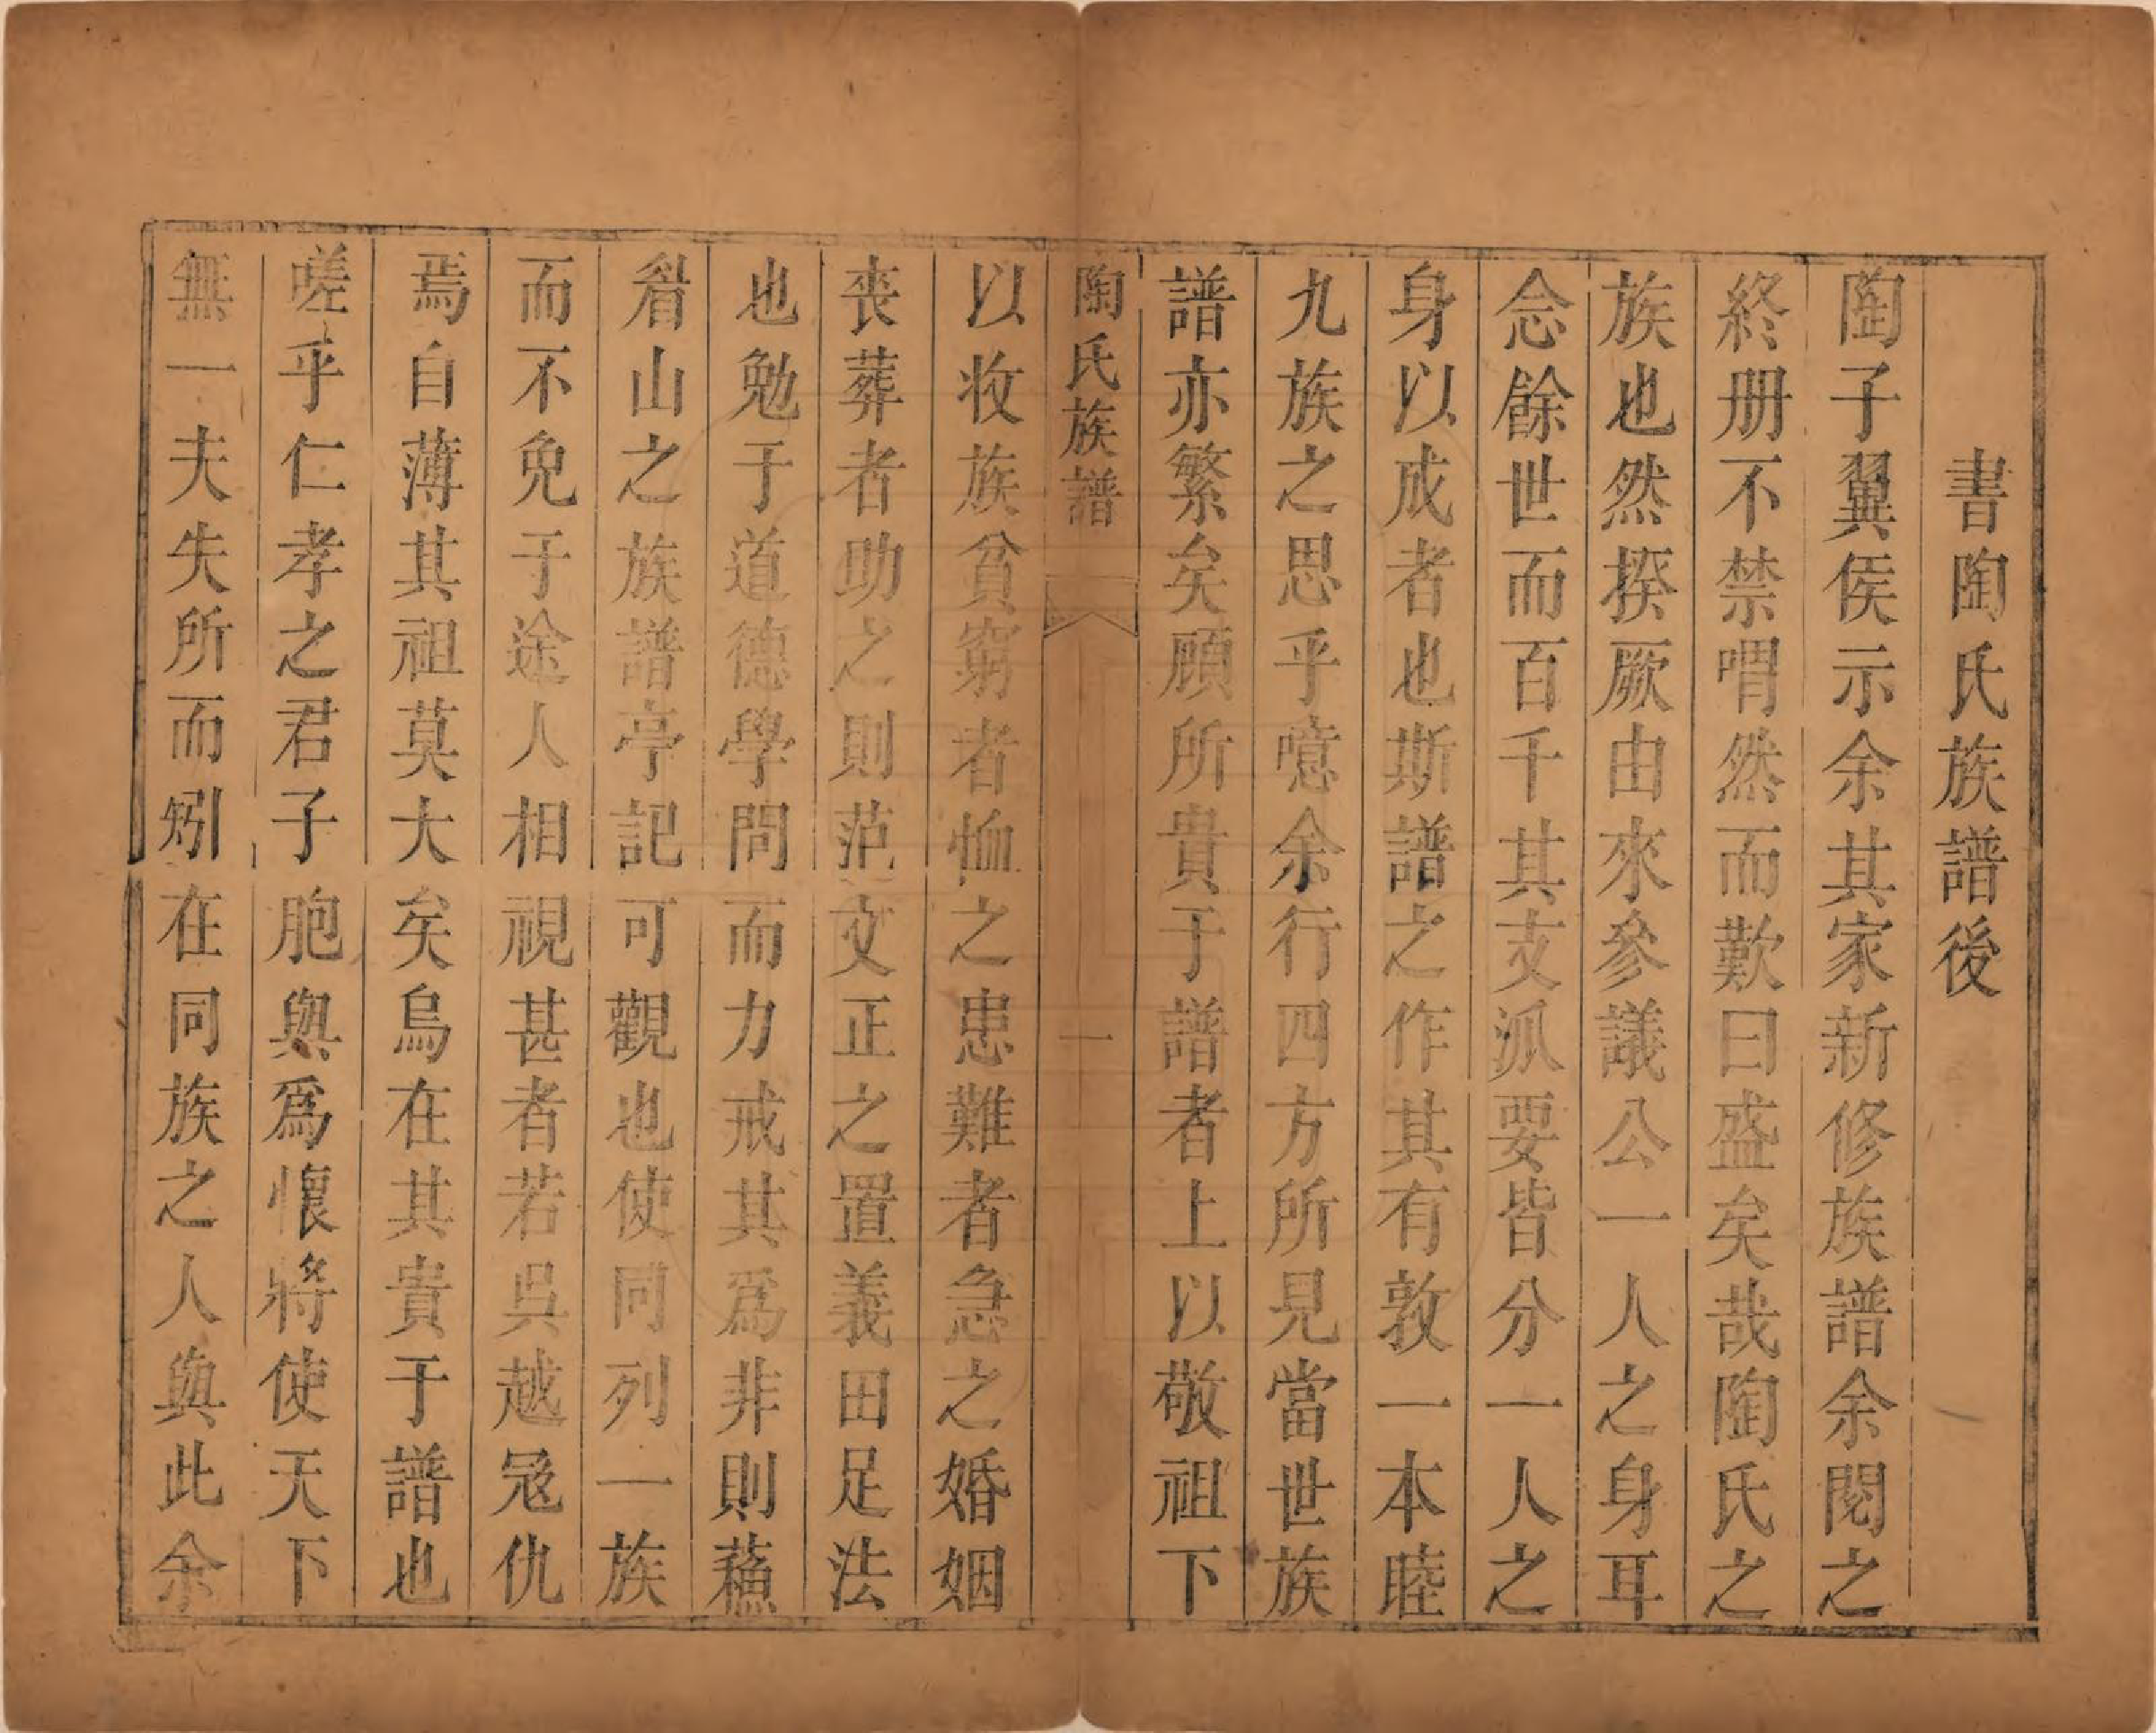 書陶氏族譜後
陶子翼侯示余其家新修族譜余閱之
終册不禁喟然而歎曰盛矣哉陶氏之
族也然揆厥由來參議公一人之身耳
念餘世而百千其支派要皆分一人之
身以成者也斯譜之作其有敦一本睦
九族之思乎噫余行四方所見當世族
譜亦繁矣顧所貴于譜者上以敬祖下
陶氏族譜 一
以收族貧窮者恤之患難者急之婚姻
丧葬者助之則范文正之置義田足法
也勉于道德學問而力戒其爲非則蘓
眉山之族譜亭記可觀也使同列一族
而不免于途人相視甚者若呉越冦仇
焉自薄其祖莫大矣烏在其貴于譜也
嗟乎仁孝之君子胞與爲懷將使天下
無一夫失所而矧在同族之人與此余